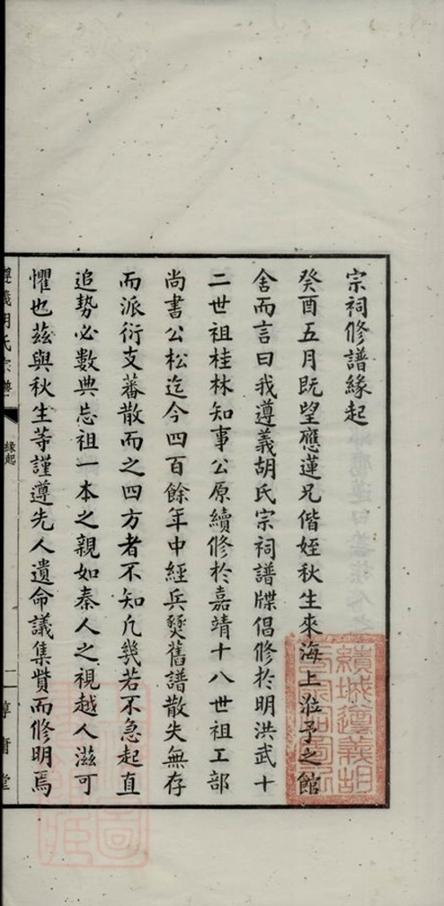 宗祠修譜緣起
癸酉五月既望應蓮兄偕姪秋生來海上涖予之館
舍而言曰我遵義胡氏宗祠譜牒倡修於明洪武十
二世祖桂林知事公原續修於嘉靖十八世祖工部
尚書公松迄今四百餘年中經兵燹舊譜散失無存
而派衍支蕃散而之四方者不知凡幾若不急起直
追勢必數典忘祖一本之親如秦人之視越人滋可
懼也茲與秋生等謹遵先人遺命議集貲而修明焉
遵義胡氏宗譜
緣起
一
尊庸堂
績城遵義胡